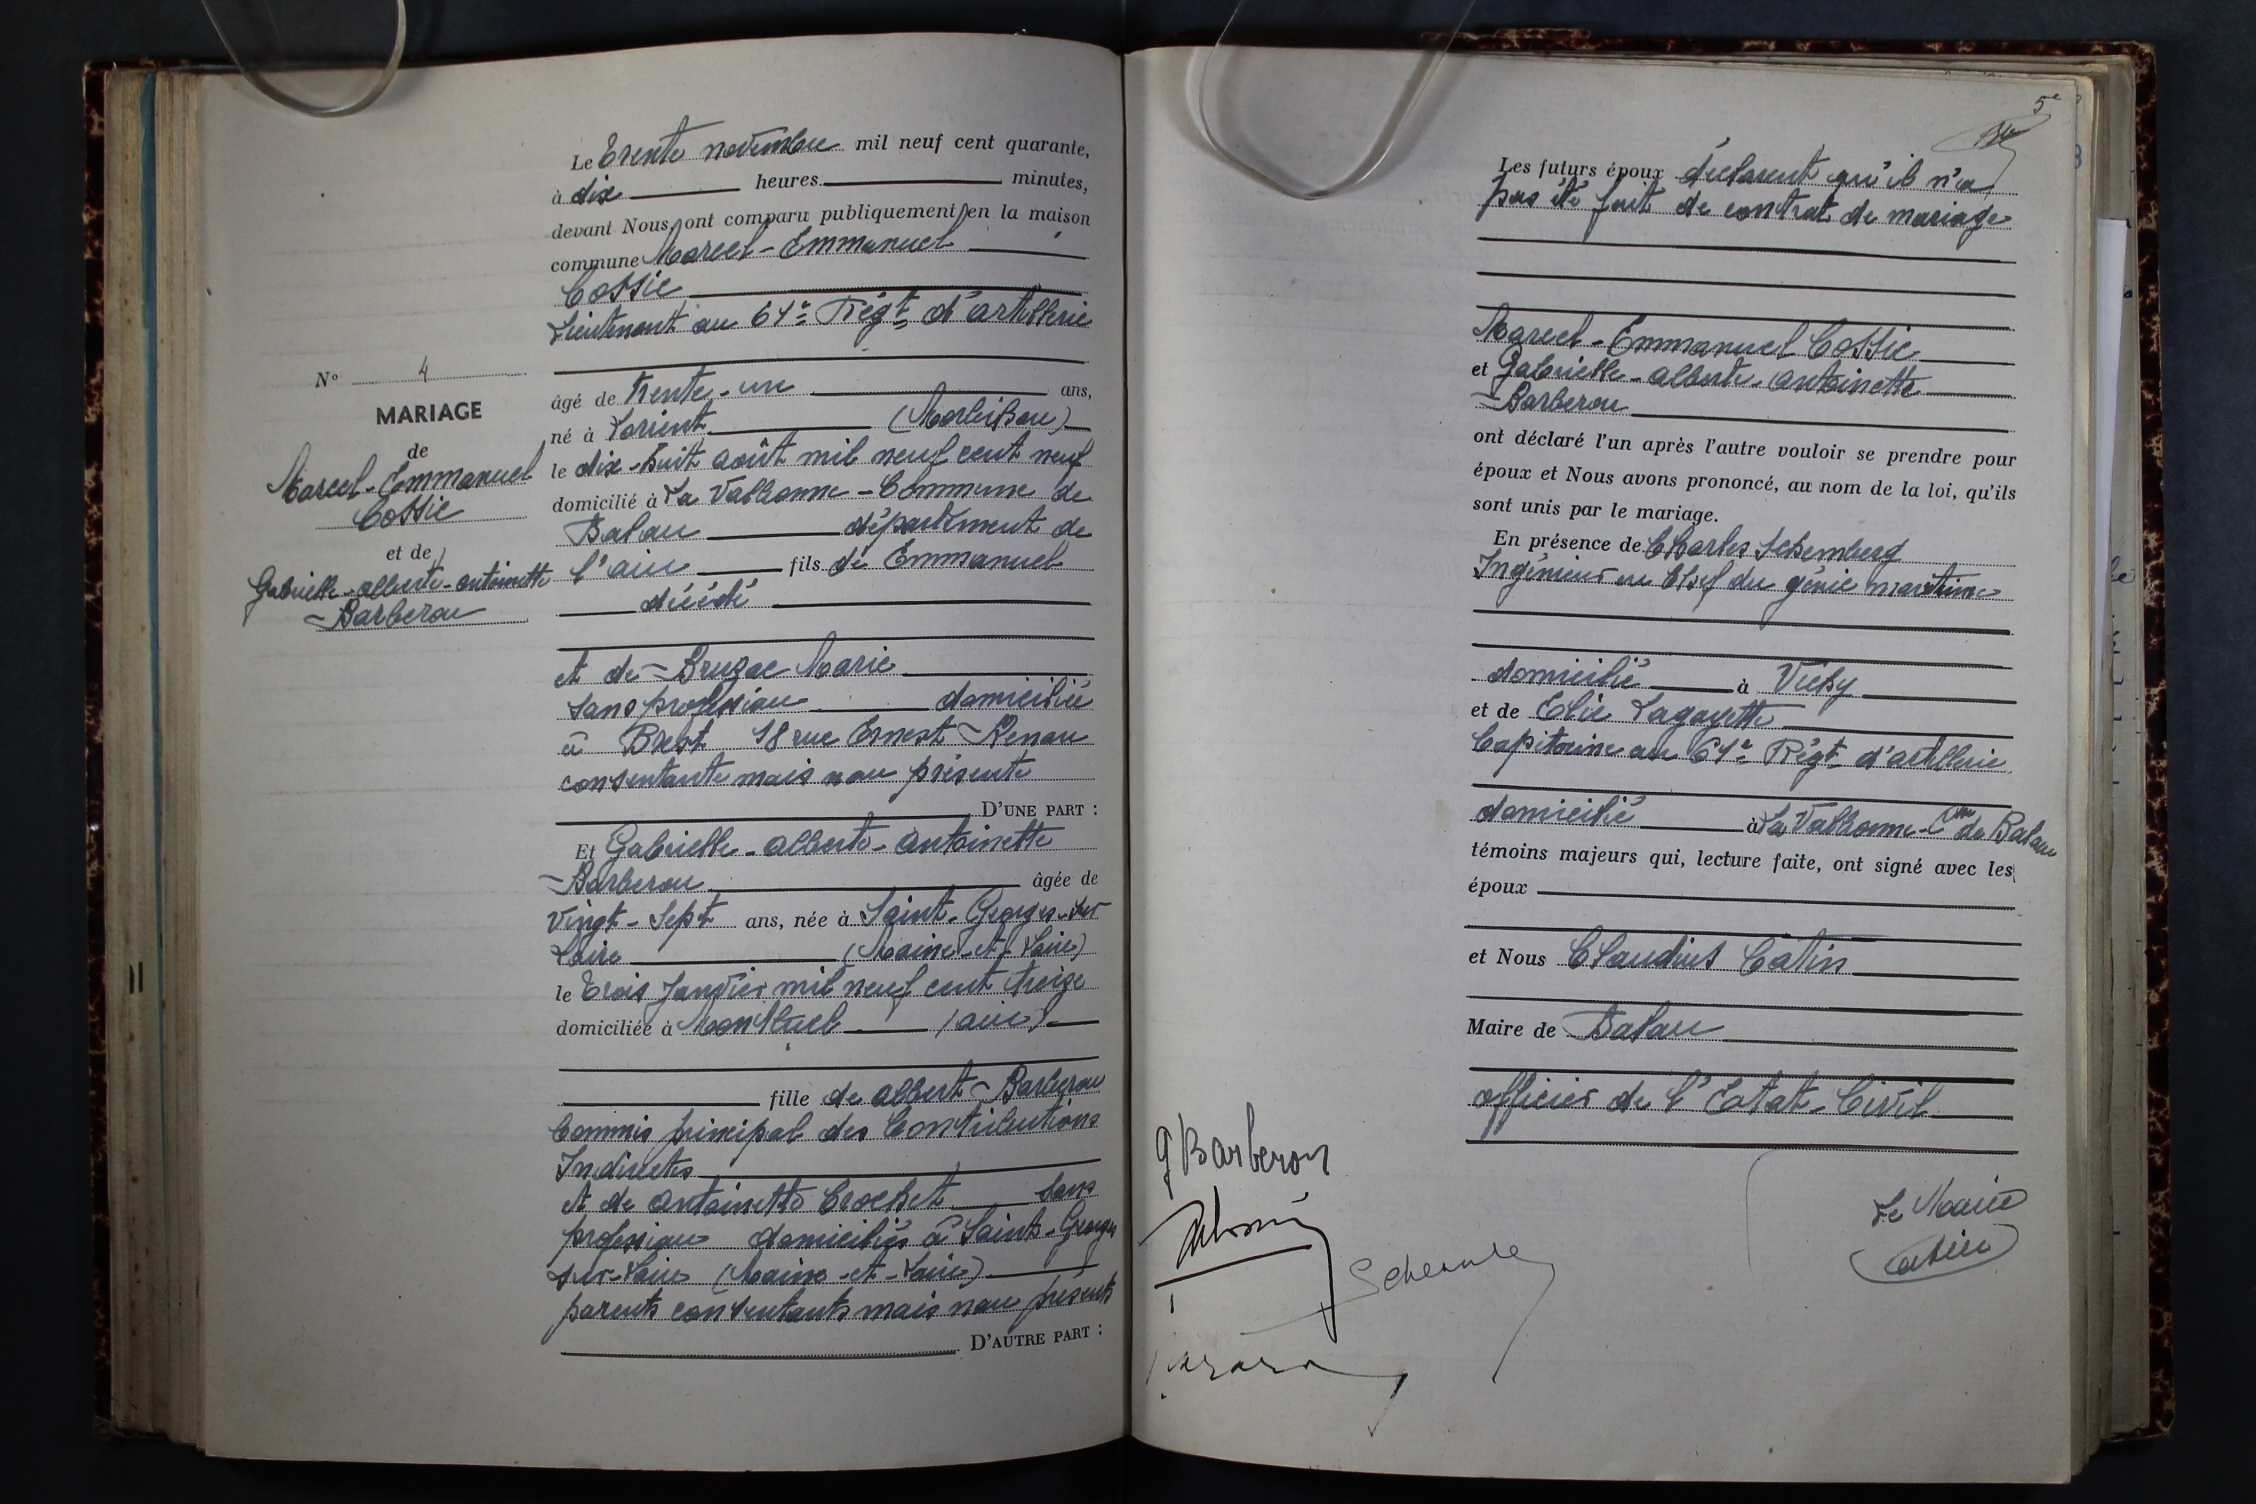 N° 4
MARIAGE
de
Marcel-Emmanuel
Cossic
et de
Gabrielle-Alberte-Antoinette
Barberon
Le Trente novembre mil neuf cent quarante,
à dix heures minutes,
devant Nous ont comparu publiquement en la maison
commune Marcel-Emmanuel
Cossic
Lieutenant au 61e Régt d'artillerie
âgé de Trente-un ans,
né à Lorient (Morbihan)
le dix-huit août mil neuf cent neuf
domicilié à La Valbonne-Commune de
Balan département de
l'ain fils de Emmanuel
décédé
et de Bruzac Marie
sans profession domiciliée
à Brest 18 rue Ernest Renan
consentante mais non présente
D'UNE PART :
Et Gabrielle-Alberte-Antoinette
Barberon âgée de
vingt-sept ans, née à Saint-Georges-sur
Loire (Maine-et-Loire)
le Trois Janvier mil neuf cent treize
domiciliée à Montluel (ain)
fille de Albert Barberon
Commis principal des Contributions
Indirectes
et de Antoinette Crochet sans
profession domiciliés à Saint-Georges
sur-Loire (Maine-et-Loire)
parents consentants mais non présents
D'AUTRE PART :
5e
Les futurs époux déclarent qu'il n'a
pas été fait de contrat de mariage
Marcel-Emmanuel Cossic
et Gabrielle-Alberte-Antoinette
Barberon
ont déclaré l'un après l'autre vouloir se prendre pour
époux et Nous avons prononcé, au nom de la loi, qu'ils
sont unis par le mariage.
En présence de Charles Schemberg
Ingénieur en Chef du génie maritime
domicilié à Vichy
et de Elie Lagayette
Capitaine au 61e Régt d'artillerie
domicilié à La Valbonne-Cne de Balan
témoins majeurs qui, lecture faite, ont signé avec les
époux
et Nous Claudius Catin
Maire de Balan
officier de l'Etat-Civil
G Barberon
Le Maire
Catin